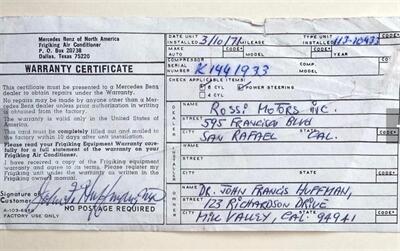 Mercedes Benz of North America
Frigiking Air Conditioner
P. O. BOX 20738
Dallas, Texas 75220
WARRANTY CERTIFICATE
This certificate must be presented to a Mercedes Benz
dealer to obtain repairs under the Warranty.
No repairs may be made by anyone other than a Mer-
cedes Benz dealer unless prior authorization in writing
is obtained from the factory.
The warranty is valid only in the United States of
America.
This card must be completely filled out and mailed
to the factory within 10 days after unit installation.
Please read your Frigiking Equipment Warranty care-
fully for a full statement of the warranty on your
Frigiking Air Conditioner.
I have received a copy of the Frigiking equipment
warranty and agree to its terms. Please register my
Frigiking unit under the warranty as written in the
Frigiking owner's manual.
Signature of
Customer
A-103-69
NO POSTAGE REQUIRED
FACTORY USE ONLY
DATE UNIT
INSTALLED 3/10/71 MILEAGE
INSTALLED
MAKE
AUTO
MODEL
YEAR
CODE*
COMPRESSOR
SERIAL
NUMBER K1441933
CODE*
CHECK APPLICABLE ITEMS:
6 CYL
8 CYL.
POWER STEERING
DEALER
NAME
ROSSI MOTORS INC.
STREET
595 FRANCISCO BLVD
CITY
STATE
SAN RAFAEL CAL.
NAME
STREET
CITY
STATE
OWNER
NAME
DR. JOHN FRANCIS HUFFMAN,
STREET
123 RICHARDSON DRIVE
CITY
STATE
MILL VALLEY, CAL. 94941